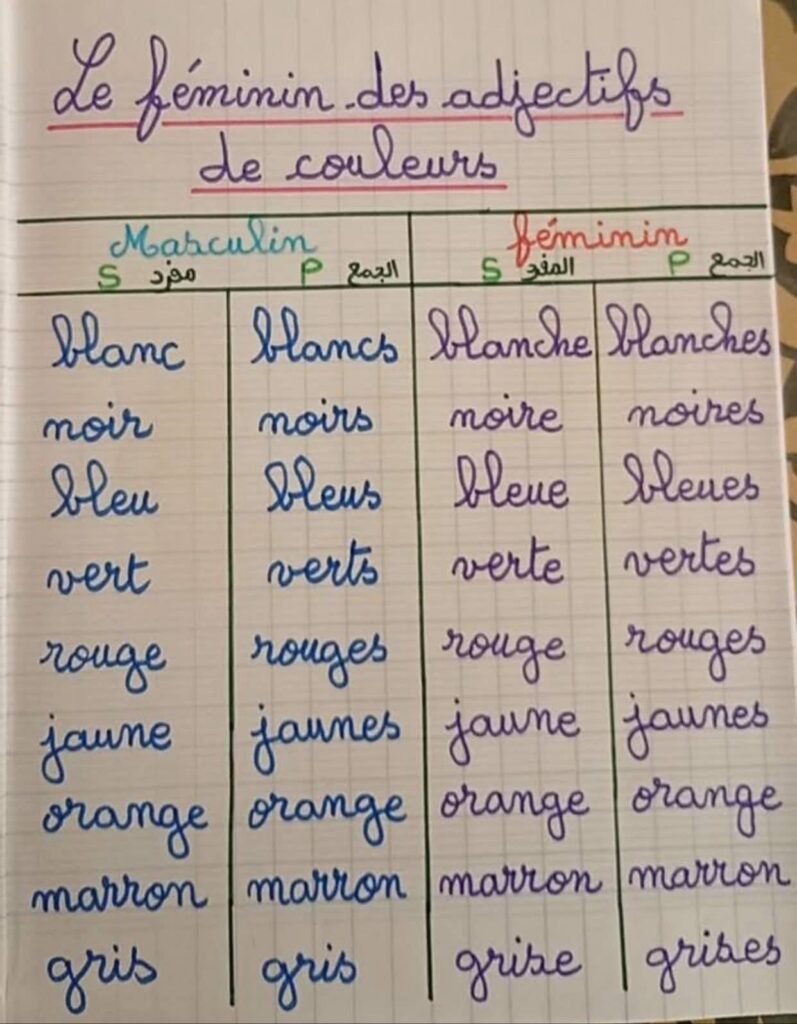 Le féminin des adjectifs
de couleurs
Masculin féminin
S مفرد P الجمع S المفرد P الجمع
blanc blancs blanche blanches
noir noirs noire noires
bleu bleus bleue bleues
vert verts verte vertes
rouge rouges rouge rouges
jaune jaunes jaune jaunes
orange orange orange orange
marron marron marron marron
gris gris grise grises